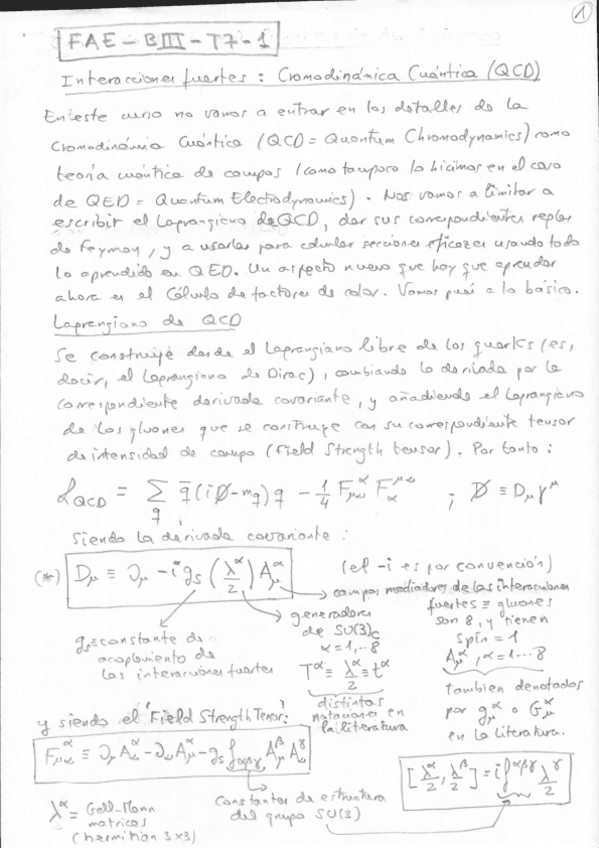 1
FAE - BIII - T7 - 1
Interacciones fuertes : Cromodinámica Cuántica (QCD)
En este curso no vamos a entrar en los detalles de la
Cromodinámica Cuántica (QCD = Quantum Chromodynamics) como
teoría cuántica de campos (como tampoco lo hicimos en el caso
de QED = Quantum Electrodynamics). Nos vamos a limitar a
escribir el Lagrangiano de QCD, dar sus correspondientes reglas
de Feyman, y a usarlas para calcular secciones eficaces usando todo
lo aprendido en QED. Un aspecto nuevo que hay que aprender
ahora es el Cálculo de factores de color. Vamos pues a lo básico.
Lagrangiano de QCD
Se construye desde el Lagrangiano libre de los quarks (es,
decir, el Lagrangiano de Dirac), cambiando la derivada por la
correspondiente derivada covariante, y añadiendo el Lagrangiano
de los gluones que se construye con su correspondiente tensor
de intensidad de campo (Field Strength tensor). Por tanto :
ℒ_QCD = Σ_q q̄ (i D̸ - m_q) q - 1/4 F^α_μν F_α^μν ; D̸ ≡ D_μ γ^μ
siendo la derivada covariante :
(*) D_μ ≡ ∂_μ - i g_s (λ^α/2) A^α_μ
(el -i es por convención)
campos mediadores de las interacciones
fuertes ≡ gluones
son 8, y tienen
spin = 1
A^α_μ, α = 1...8
también denotados
por g^α_μ o G^α_μ
en la literatura.
generadores
de SU(3)_C
α = 1,..8
T^α ≡ λ^α/2 ≡ t^α
distintas
notaciones en
la literatura
g_s ≡ constante de
acoplamiento de
las interacciones fuertes
y siendo el 'Field Strength Tensor':
F^α_μν ≡ ∂_μ A^α_ν - ∂_ν A^α_μ - g_s f_αβγ A^β_μ A^γ_ν
[λ^α/2, λ^β/2] = i f^αβγ λ^γ/2
constantes de estructura
del grupo SU(3)
λ^α = Gell-Mann
matrices
(hermitian 3x3)